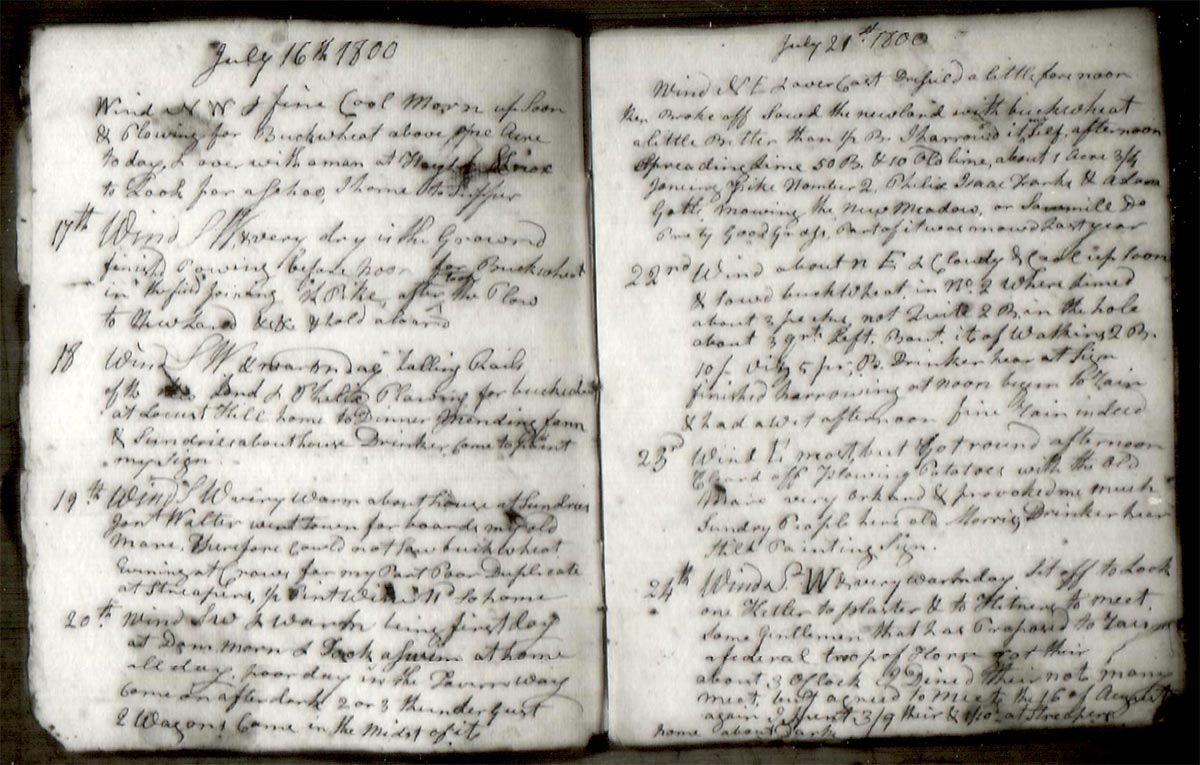 July 16th 1800
Wind N W & fine Cool Morn up Soon
& Plowing for Buckwheat above One Acre
to day & over with a man at
to Look for a home to Supper
17th Wind S W & very dry is the Ground
finishd Plowing before noon for Buckwheat
in the field Joining Pike, after the Plow
to New Land &
18 Wind S W & warm day halling Rails
of the Land & Plowing for buckwheat
at Locust Hill home to Dinner Mending
& Sundries about house Drinker Come to Paint
my Sign
19th Wind S W very warm about house at Sundries
Jont Walter went town for boards my old
Mare, Therefore could not Sow buckwheat
Evening at Crows for my Part Poor Duplicate
at Streapers, home
20th Wind SW & Warm being first day
at Morn & Took a Swim at home
all day, poor day in the Tavern Way
Come on after dark 2 or 3 thunder Gust
2 Wagons Come in the Midst of it
July 21st 1800
Wind N E & over Cast a little fore noon
then Broke off Sowd the newland with buckwheat
a little Better than I harrowd it Self, afternoon
Spreading Lime 50 B. & 10 Old lime, about 1 Acre 3/4
Joining Pike Number 2, Philix Isaac & Adam
Gott. Mowing the New Meadow, or Sawmill Do
Prety Good Grass, Part of it was mowd Last year
22nd Wind about N E & Cloudy & Cool up Soon
& Sowd buckwheat in No. 2 Where limed
about 3 pecks, not Quite 2 B. in the hole
about 3 qrts Left. Bout it of Watkins 2 B.
10/- Drinker hear at Sign
finished harrowing at noon began to Rain
& had a wet afternoon fine Rain indeed
23rd Wind E most but Got round afternoon
Cleard off Plowing Potatoes with the Old
Mare very & provoked me much
Sundry People here old Morris, Drinker hear
Still Painting Sign.
24th Wind S W & very warm day Set off to Look
one to plaster & to to meet
Some Gentlemen that has Proposed to Rais
a federal troop of Horse Got their
about 3 OClock I Dined their not many
meet, but agreed to meet the 16 of August
again Spent 3/9 their & at Streapers
home about Dark